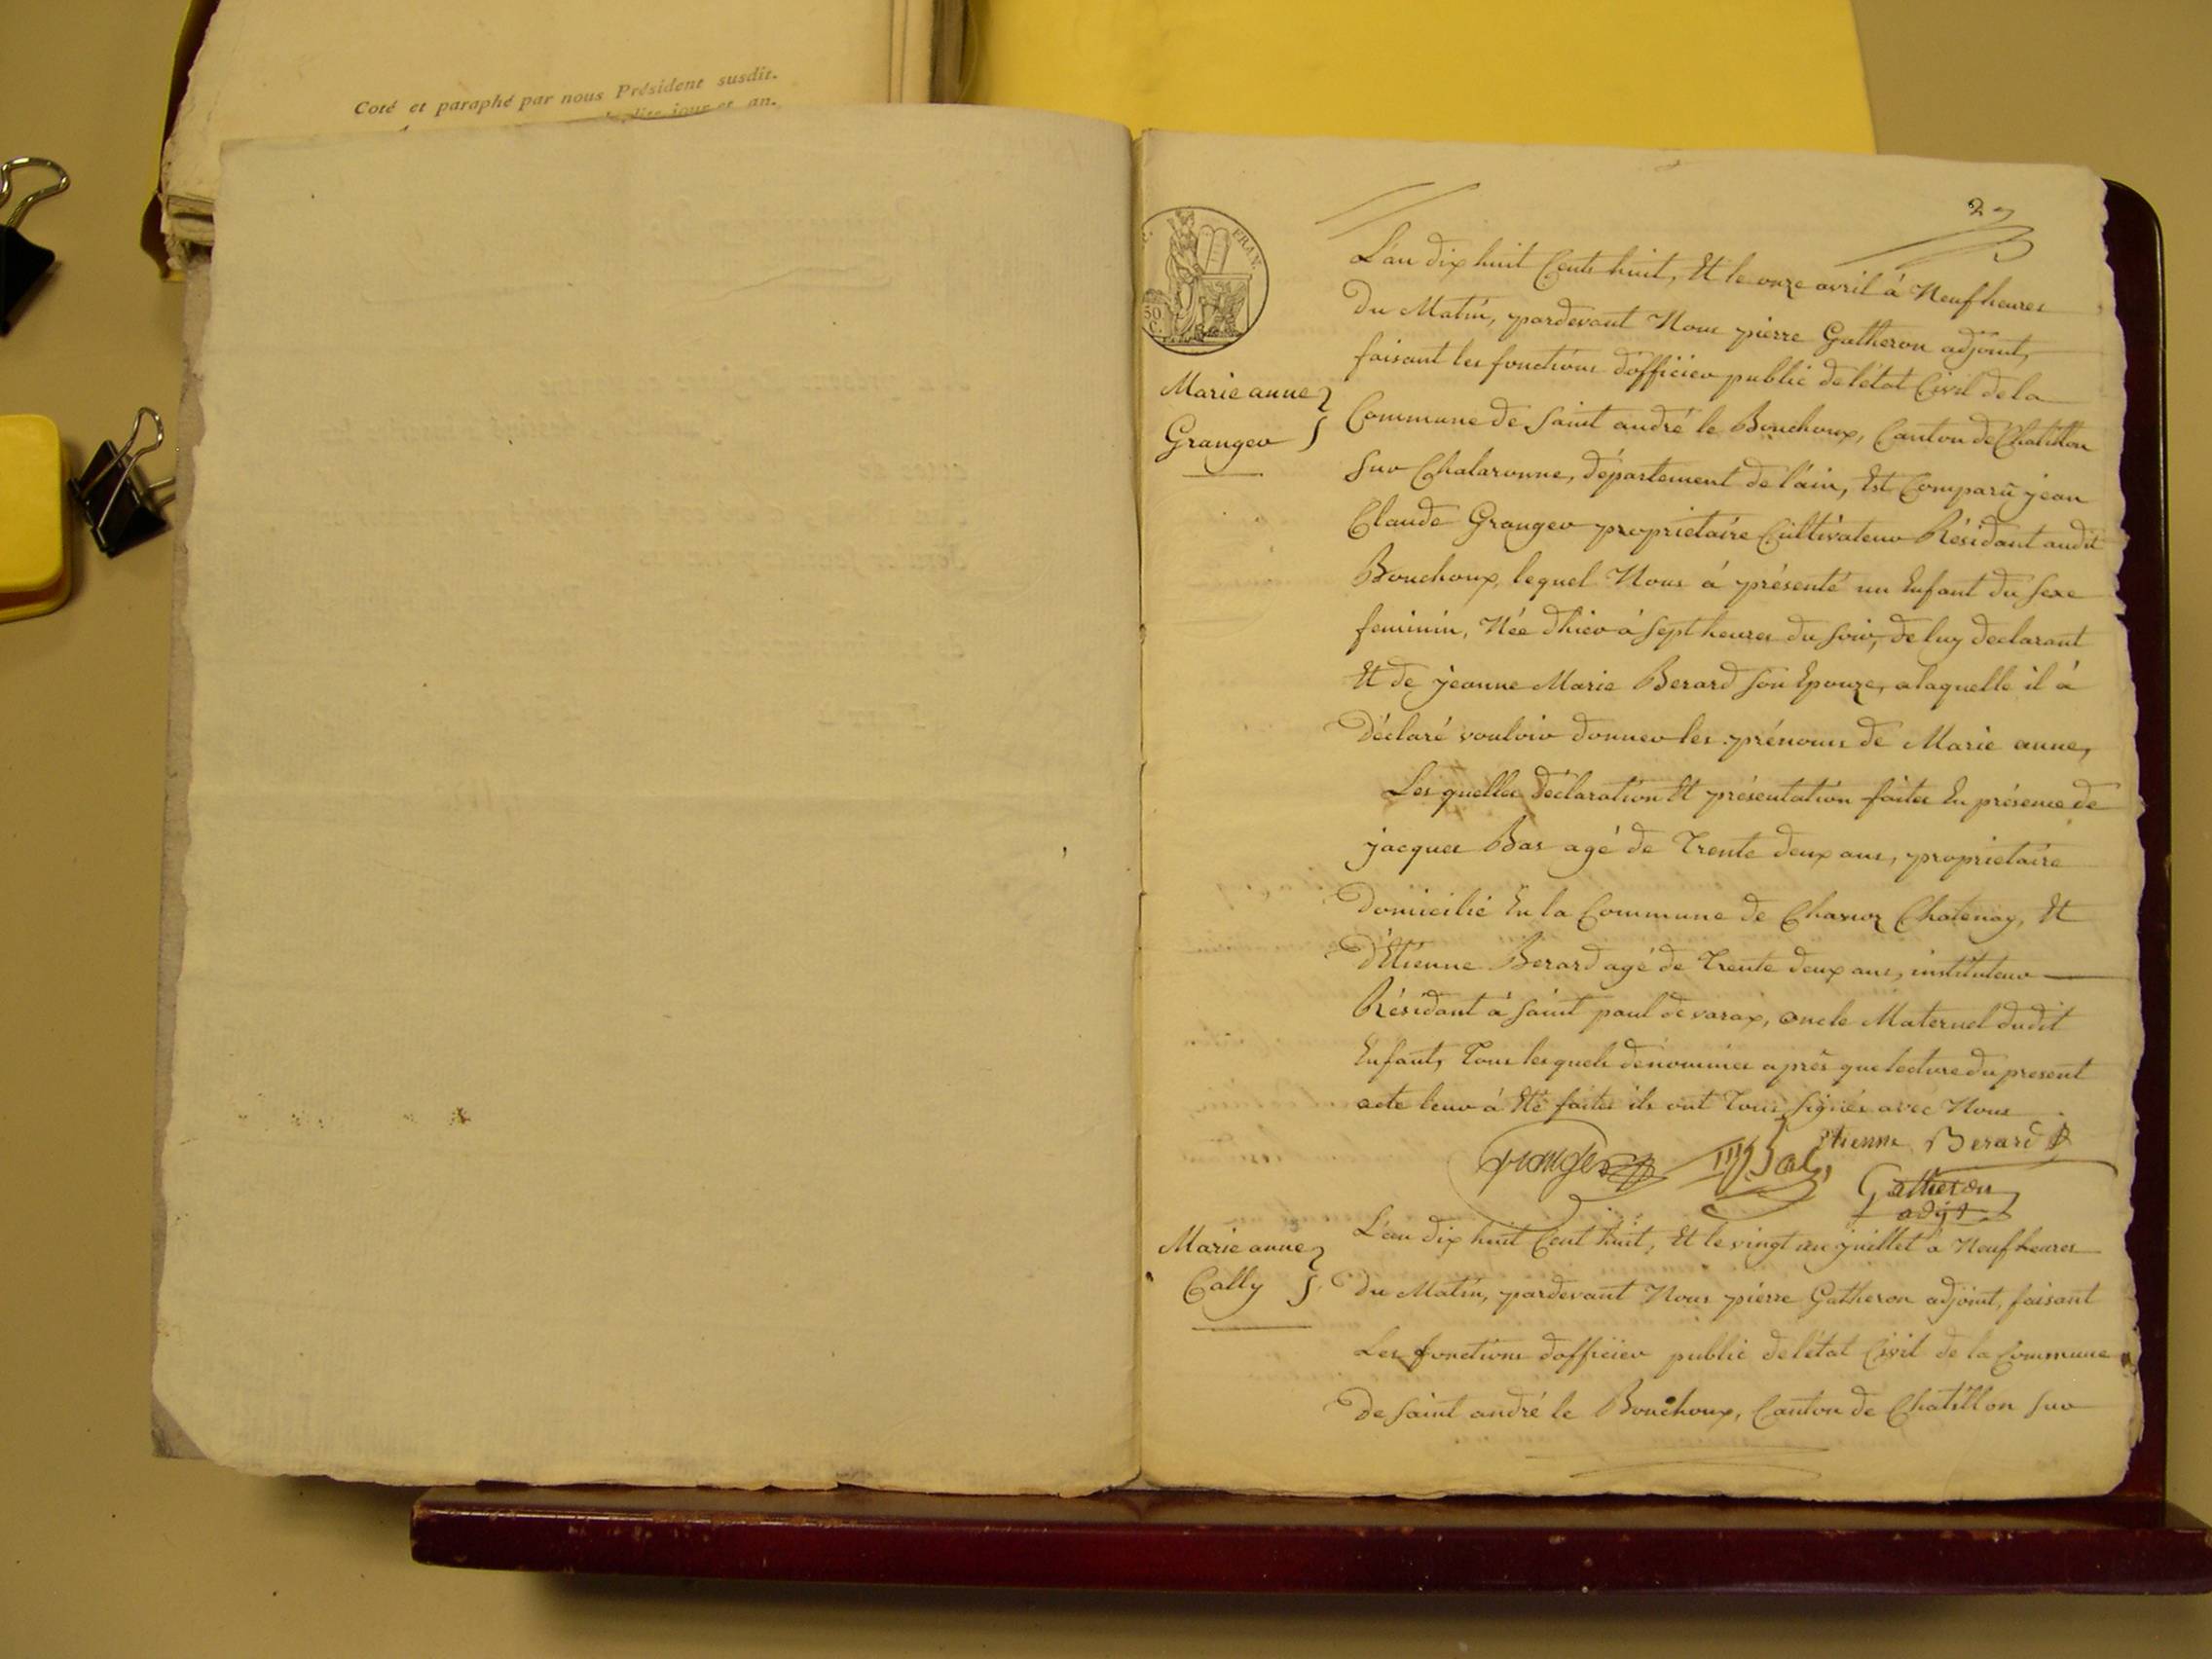 Coté et paraphé par nous Président susdit.
jour et an.
2
FRAN.
50
C.
L'an dix huit Cents huit, Et le onze avril à Neuf heures
Du Matin, pardevant Nous pierre Gatheron adjoint,
faisant les fonctions d'officier public de l'état Civil de la
Marie anne
Granger
Commune de Saint andré le Bouchoux, Canton de Chatillon
sur Chalaronne, département de l'ain, Est Comparû jean
Claude Granger proprietaire Cultivateur Résidant audit
Bouchoux, lequel Nous á présenté un Enfant du sexe
feminin, Née d'hier à sept heures du soir, de luy declarant
Et de jeanne Marie Berard son Epouze, a laquelle il á
Déclaré vouloir donner les prénoms de Marie anne,
Les quelles déclaration Et présentation faites En présence de
jacques Bas agé de Trente deux ans, proprietaire
Domicilié En la Commune de Chatenay, Et
d'Etienne Berard agé de Trente deux ans, instituteur
Résidant à saint paul de varax, oncle Maternel dudit
Enfant, Tous lesquels dénommés après que lecture du present
acte leur á Eté faites ils ont Tous signés avec Nous
Granger Bas Etienne Berard
Gatheron
adjt
Marie anne
Cally
L'an dix huit Cent huit, Et le vingt un juillet à Neuf heures
Du Matin, pardevant Nous pierre Gatheron adjoint, faisant
Les fonctions d'officier public de l'état Civil de la Commune
De saint andré le Bouchoux, Canton de Chatillon sur